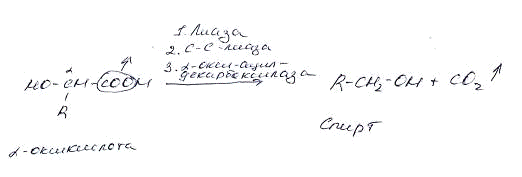 1. Лиаза
2. С-С-лиаза
3. α-окси-ацил-
декарбоксилаза
α
HO-CH-COOH → R-CH₂-OH + CO₂↑
R
Спирт
α-оксикислота